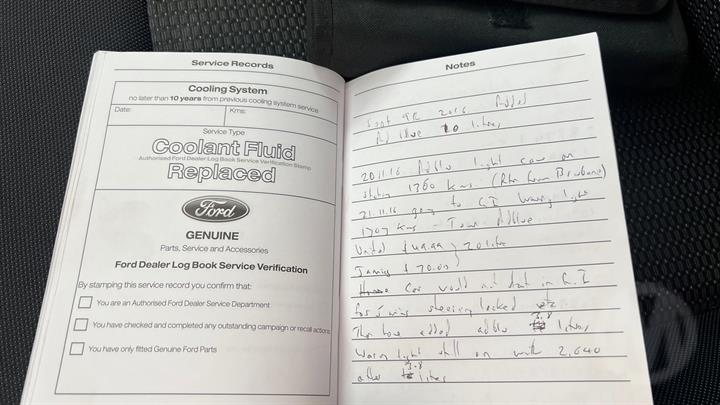 Service Records
Cooling System
no later than 10 years from previous cooling system service
Date:
Kms:
Service Type
Coolant Fluid
Authorised Ford Dealer Log Book Service Verification Stamp
Replaced
Ford
GENUINE
Parts, Service and Accessories
Ford Dealer Log Book Service Verification
By stamping this service record you confirm that:
You are an Authorised Ford Dealer Service Department
You have checked and completed any outstanding campaign or recall actions
You have only fitted Genuine Ford Parts
Notes
Sept 2016 Added
Ad Blue 10 litres
20.11.16 Adblu light came on
1360 kms. (Rtn from Brisbane)
21.11.16 going to G.I Warning light
1707 kms - Town Adblue
United $49.99 } 20 litre
$70.00
Car would not start in G.I
for 5 mins steering locked
Then added adblu 3.8 litres
Warning light still on with 2,640
after 3.8 litres